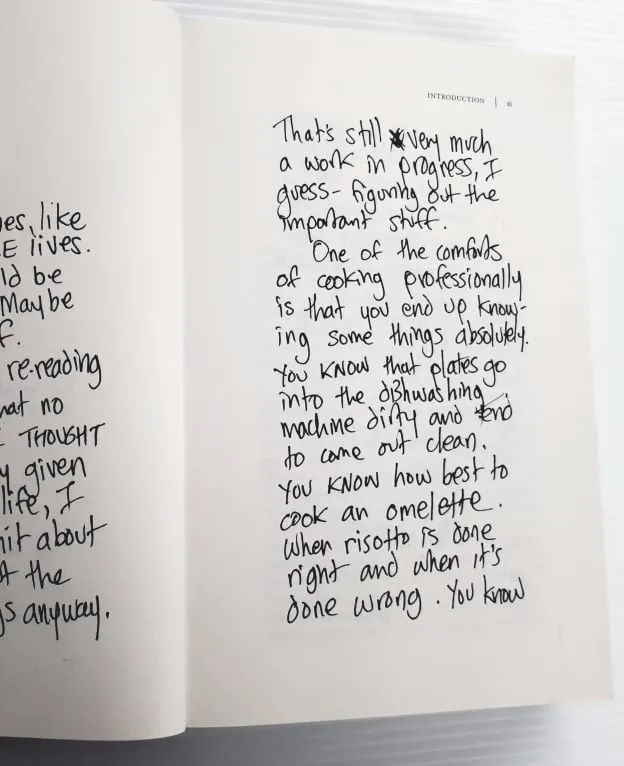 es, like
E lives.
ld be
Maybe
f.
re-reading
hat no
I THOUGHT
y given
life, I
hit about
the
s anyway.
INTRODUCTION | xi
That's still very much
a work in progress, I
guess- figuring out the
important stuff.
One of the comforts
of cooking professionally
is that you end up know-
ing some things absolutely.
YOU KNOW that plates go
into the dishwashing
machine dirty and tend
to come out clean.
YOU KNOW how best to
cook an omelette.
When risotto is done
right and when it's
done wrong. You know